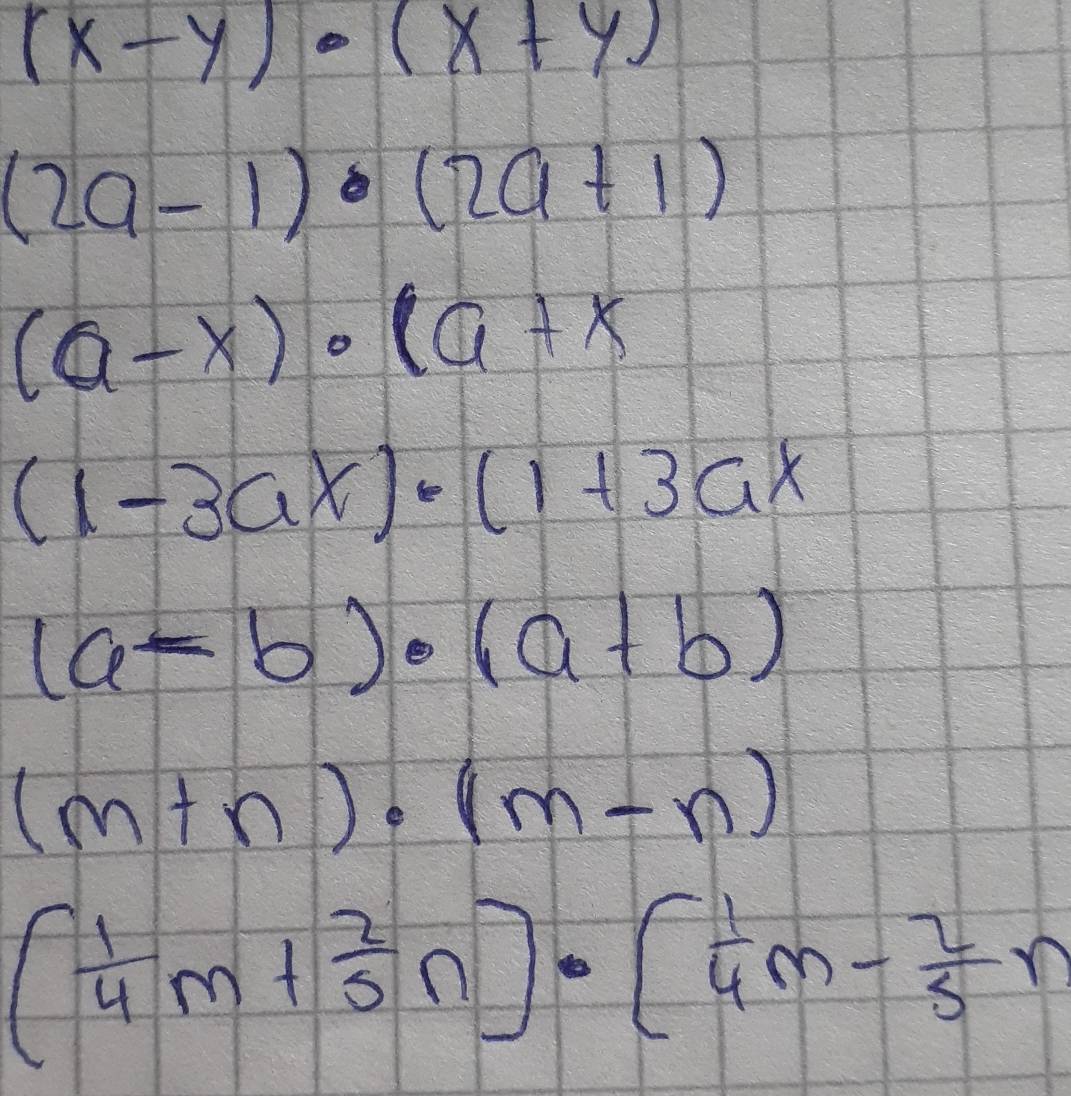 (x-y)·(x+y)
(2a-1)·(2a+1)
(a-x)·(a+x
(1-3ax)·(1+3ax
(a-b)·(a+b)
(m+n)·(m-n)
[1/4m+2/5n]·[1/4m-2/5n